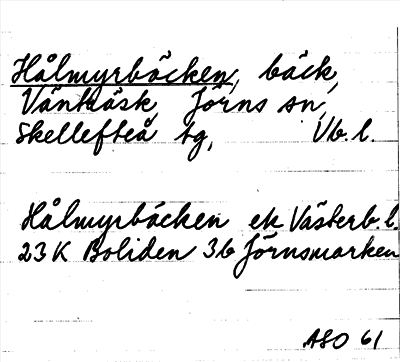 Hålmyrbäcken, bäck,
Vänträsk, Jörns sn,
Skellefteå tg, Vb. l.
Hålmyrbäcken ek Västerb. l.
23 K Boliden 3b Jörnsmarken
ASO 61